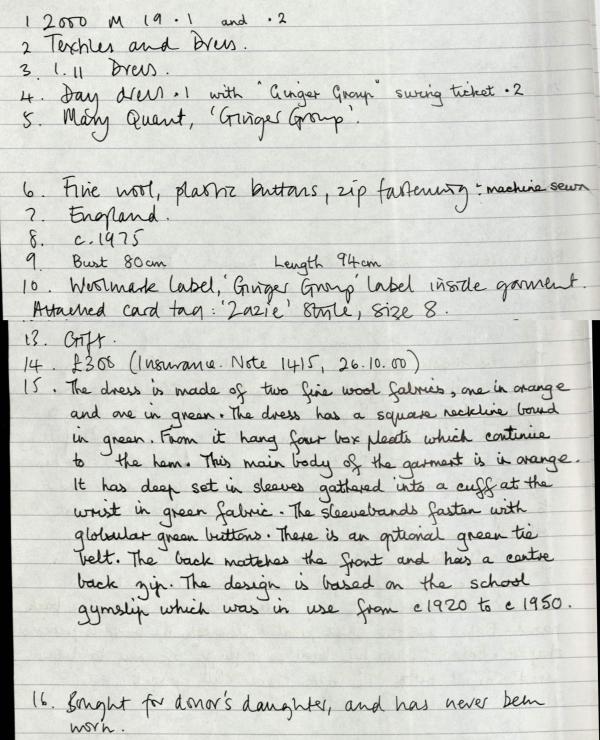 1 2000 M 19 .1 and .2
2 Textiles and Dress.
3. 1.11 Dress.
4. Day dress .1 with "Ginger Group" swing ticket .2
5. Mary Quant, 'Ginger Group'.
6. Fine wool, plastic buttons, zip fastening: machine sewn
7. England.
8. c.1975
9. Bust 80cm Length 94cm
10. Woolmark label, 'Ginger Group' label inside garment.
Attached card tag: 'Zazie' style, size 8.
13. Gift.
14. £300 (Insurance. Note 1415, 26.10.00)
15. The dress is made of two fine wool fabrics, one in orange
and one in green. The dress has a square neckline bound
in green. From it hang four box pleats which continue
to the hem. This main body of the garment is in orange.
It has deep set in sleeves gathered into a cuff at the
wrist in green fabric. The sleevebands fasten with
globular green buttons. There is an optional green tie
belt. The back matches the front and has a centre
back zip. The design is based on the school
gymslip which was in use from c1920 to c1950.
16. Bought for donor's daughter, and has never been
worn.